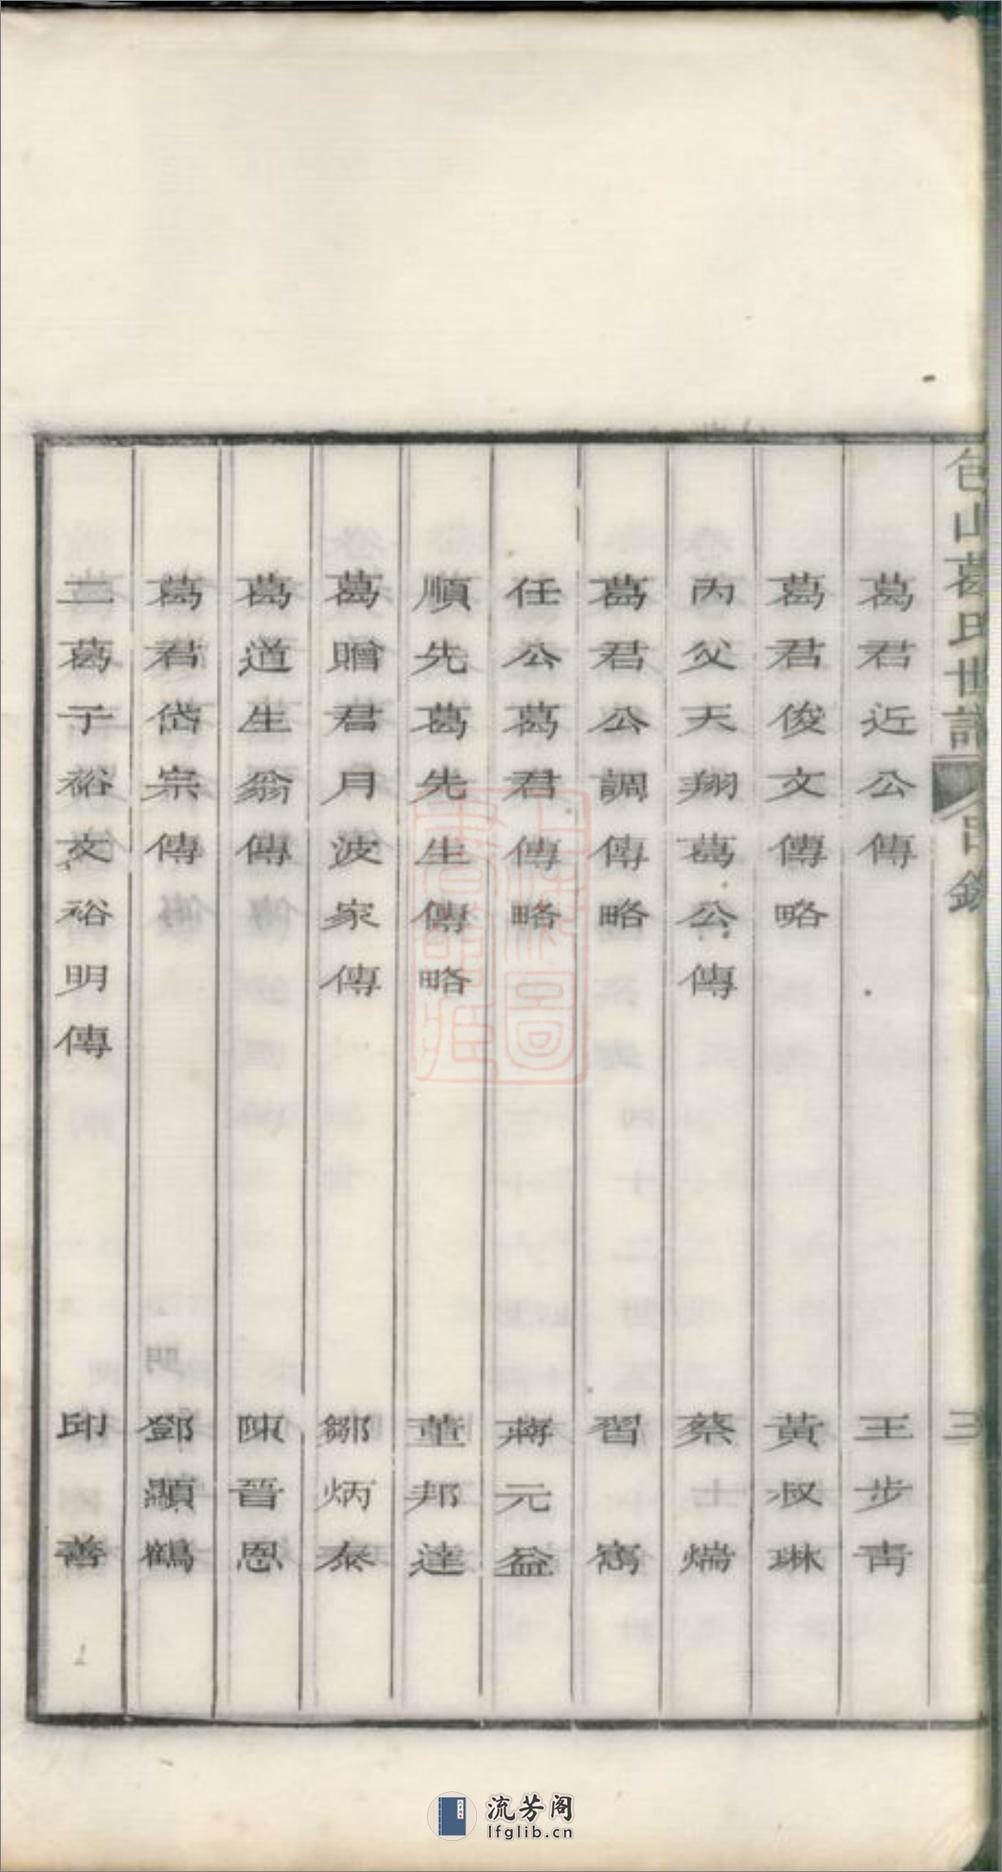 包山葛氏世譜 目錄 三
葛君近公傳 王步青
葛君俊文傳略 黃叔琳
丙父天翔葛公傳 蔡士煓
葛君公調傳略 習寯
任公葛君傳略 蔣元益
順先葛先生傳略 董邦達
葛贈君月波家傳 鄒炳泰
葛道生翁傳 陳晉恩
葛君岱宗傳 鄧顯鶴
二葛子裕文裕明傳 邱善
上海圖書館藏
流芳阁
lfglib.cn